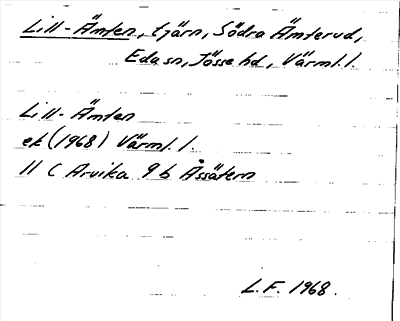 Lill-Ämten, tjärn, Södra Ämterud,
Eda sn, Jösse hd, Värml. l.
Lill-Ämten
ek (1968) Värml. l.
11 C Arvika 9 b Åssätern
L.F. 1968.